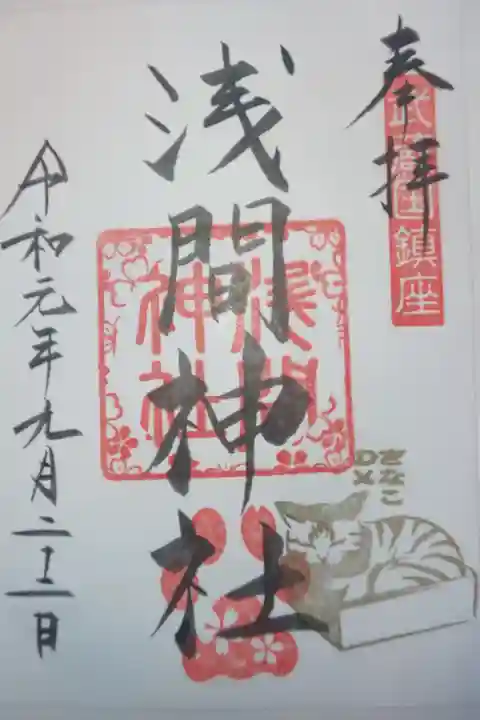 奉拝
武蔵国鎮座
浅間神社
浅間神社
きなこ
DX
令和元年九月二十二日